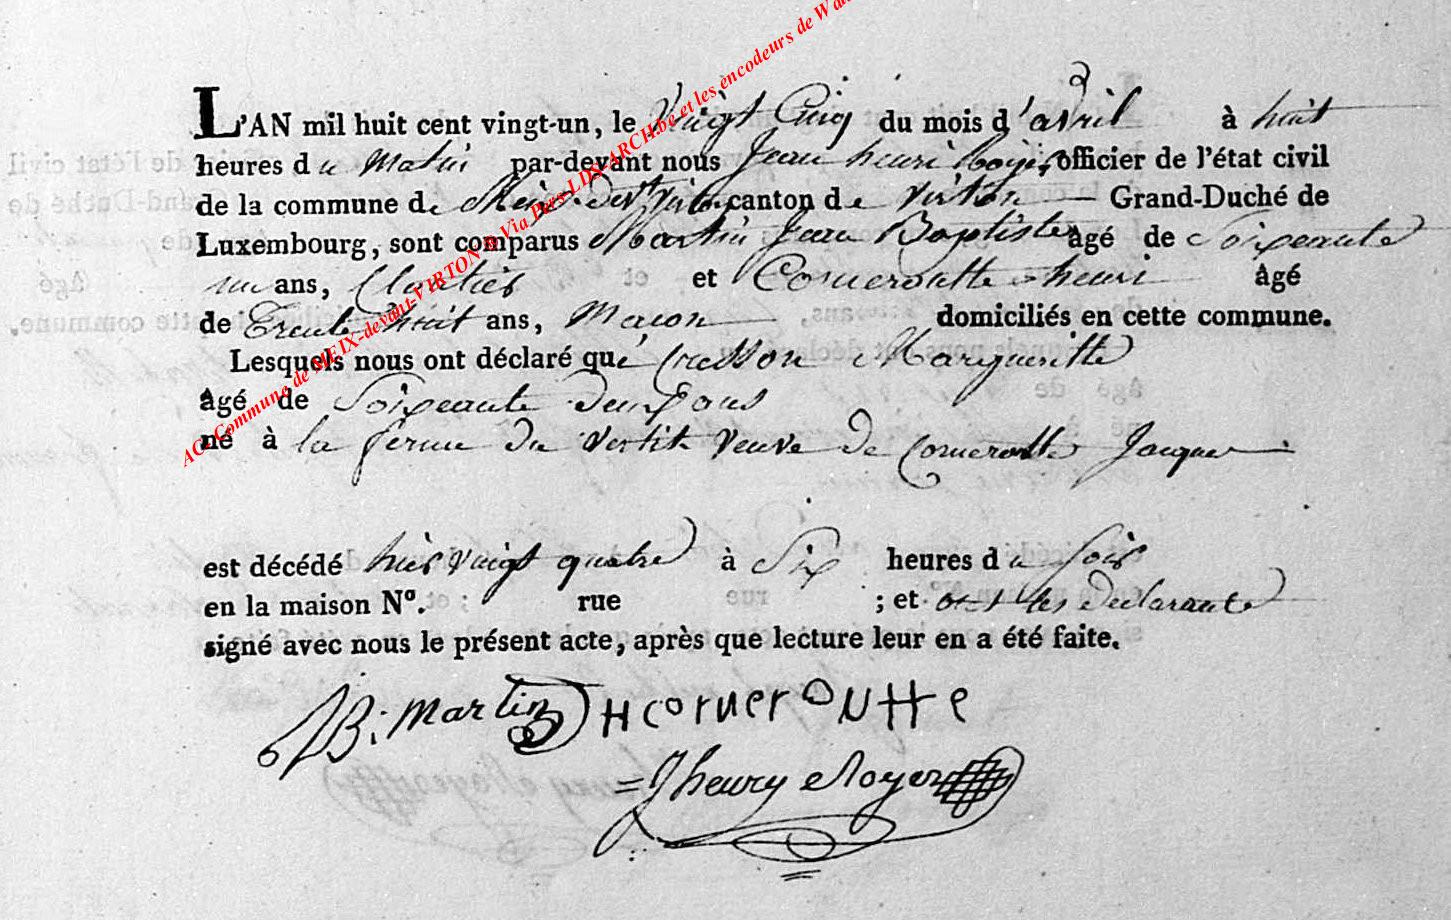 L'AN mil huit cent vingt-un, le Vingt Cinq du mois d'avril à huit
heures du Matin par-devant nous Jean henri Noyer, officier de l'état civil
de la commune de Meix-devt Virton canton de virton Grand-Duché de
Luxembourg, sont comparus Martin Jean Baptiste âgé de Soixeante
un ans, et Corneroutte henri âgé
de Trente huit ans, Macon domiciliés en cette commune.
Lesquels nous ont déclaré que Cresson Margueritte
âgé de Soixeante Deux ans
né à la ferme du vertit veuve De Corneroutte Jacque
est décédé hier vingt quatre à Six heures du Soir
en la maison N°. rue ; et ont les Declarants
signé avec nous le présent acte, après que lecture leur en a été faite.
JB. Martin H corneroutte
= J henry Noyer
AC: Commune de MEIX-devant-VIRTON Via Pays-LDS-ARCH.be et les encodeurs de